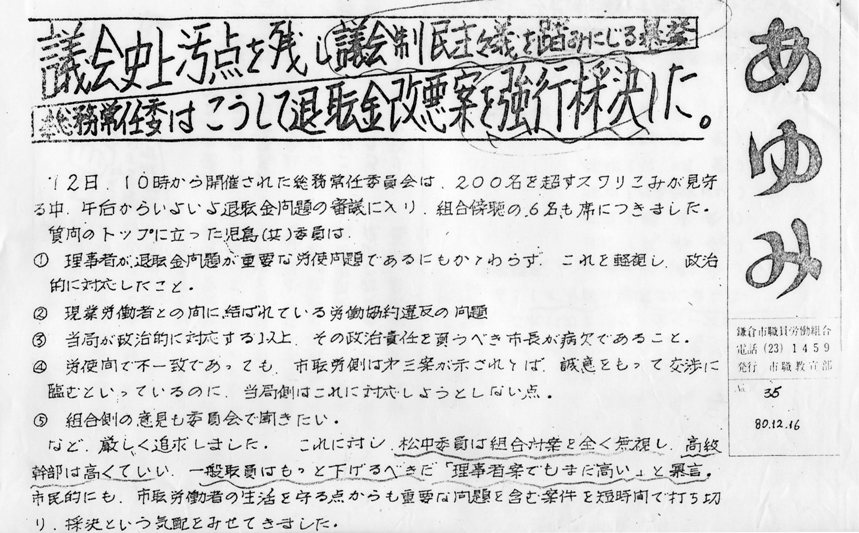 議会史上汚点を残し議会制民主々義を踏みにじる暴挙
総務常任委はこうして退职金改悪案を強行採決した。
あゆみ
鎌倉市職員労働組合
電話(23)1459
発行 市職教宣部
№ 35
80.12.16
12日、10時から開催された総務常任委員会は、200名を超すスワリこみが見守
る中、午后からいよいよ退职金問題の審議に入り、組合傍聴の6名も席につきました。
質問のトップに立った児島(共)委員は、
① 理事者が退职金問題が重要な労使問題であるにもかゝわらず、これを軽視し、政治
的に対応したこと。
② 現業労働者との間に結ばれている労働協約違反の問題
③ 当局が政治的に対応する以上、その政治責任を負うべき市長が病欠であること。
④ 労使間で不一致であっても、市职労側は才三案が示されれば、誠意をもって交渉に
臨むといっているのに、当局側はこれに対応しようとしない点。
⑤ 組合側の意見も委員会で聞きたい。
など、厳しく追求しました。 これに対し、松中委員は組合対案を全く無視し、高級
幹部は高くていい、一般职員はもっと下げるべきだ「理事者案でもまだ高い」と暴言。
市民的にも、市职労働者の生活を守る点からも重要な問題を含む案件を短時間で打ち切
り、採決という気配をみせてきました。